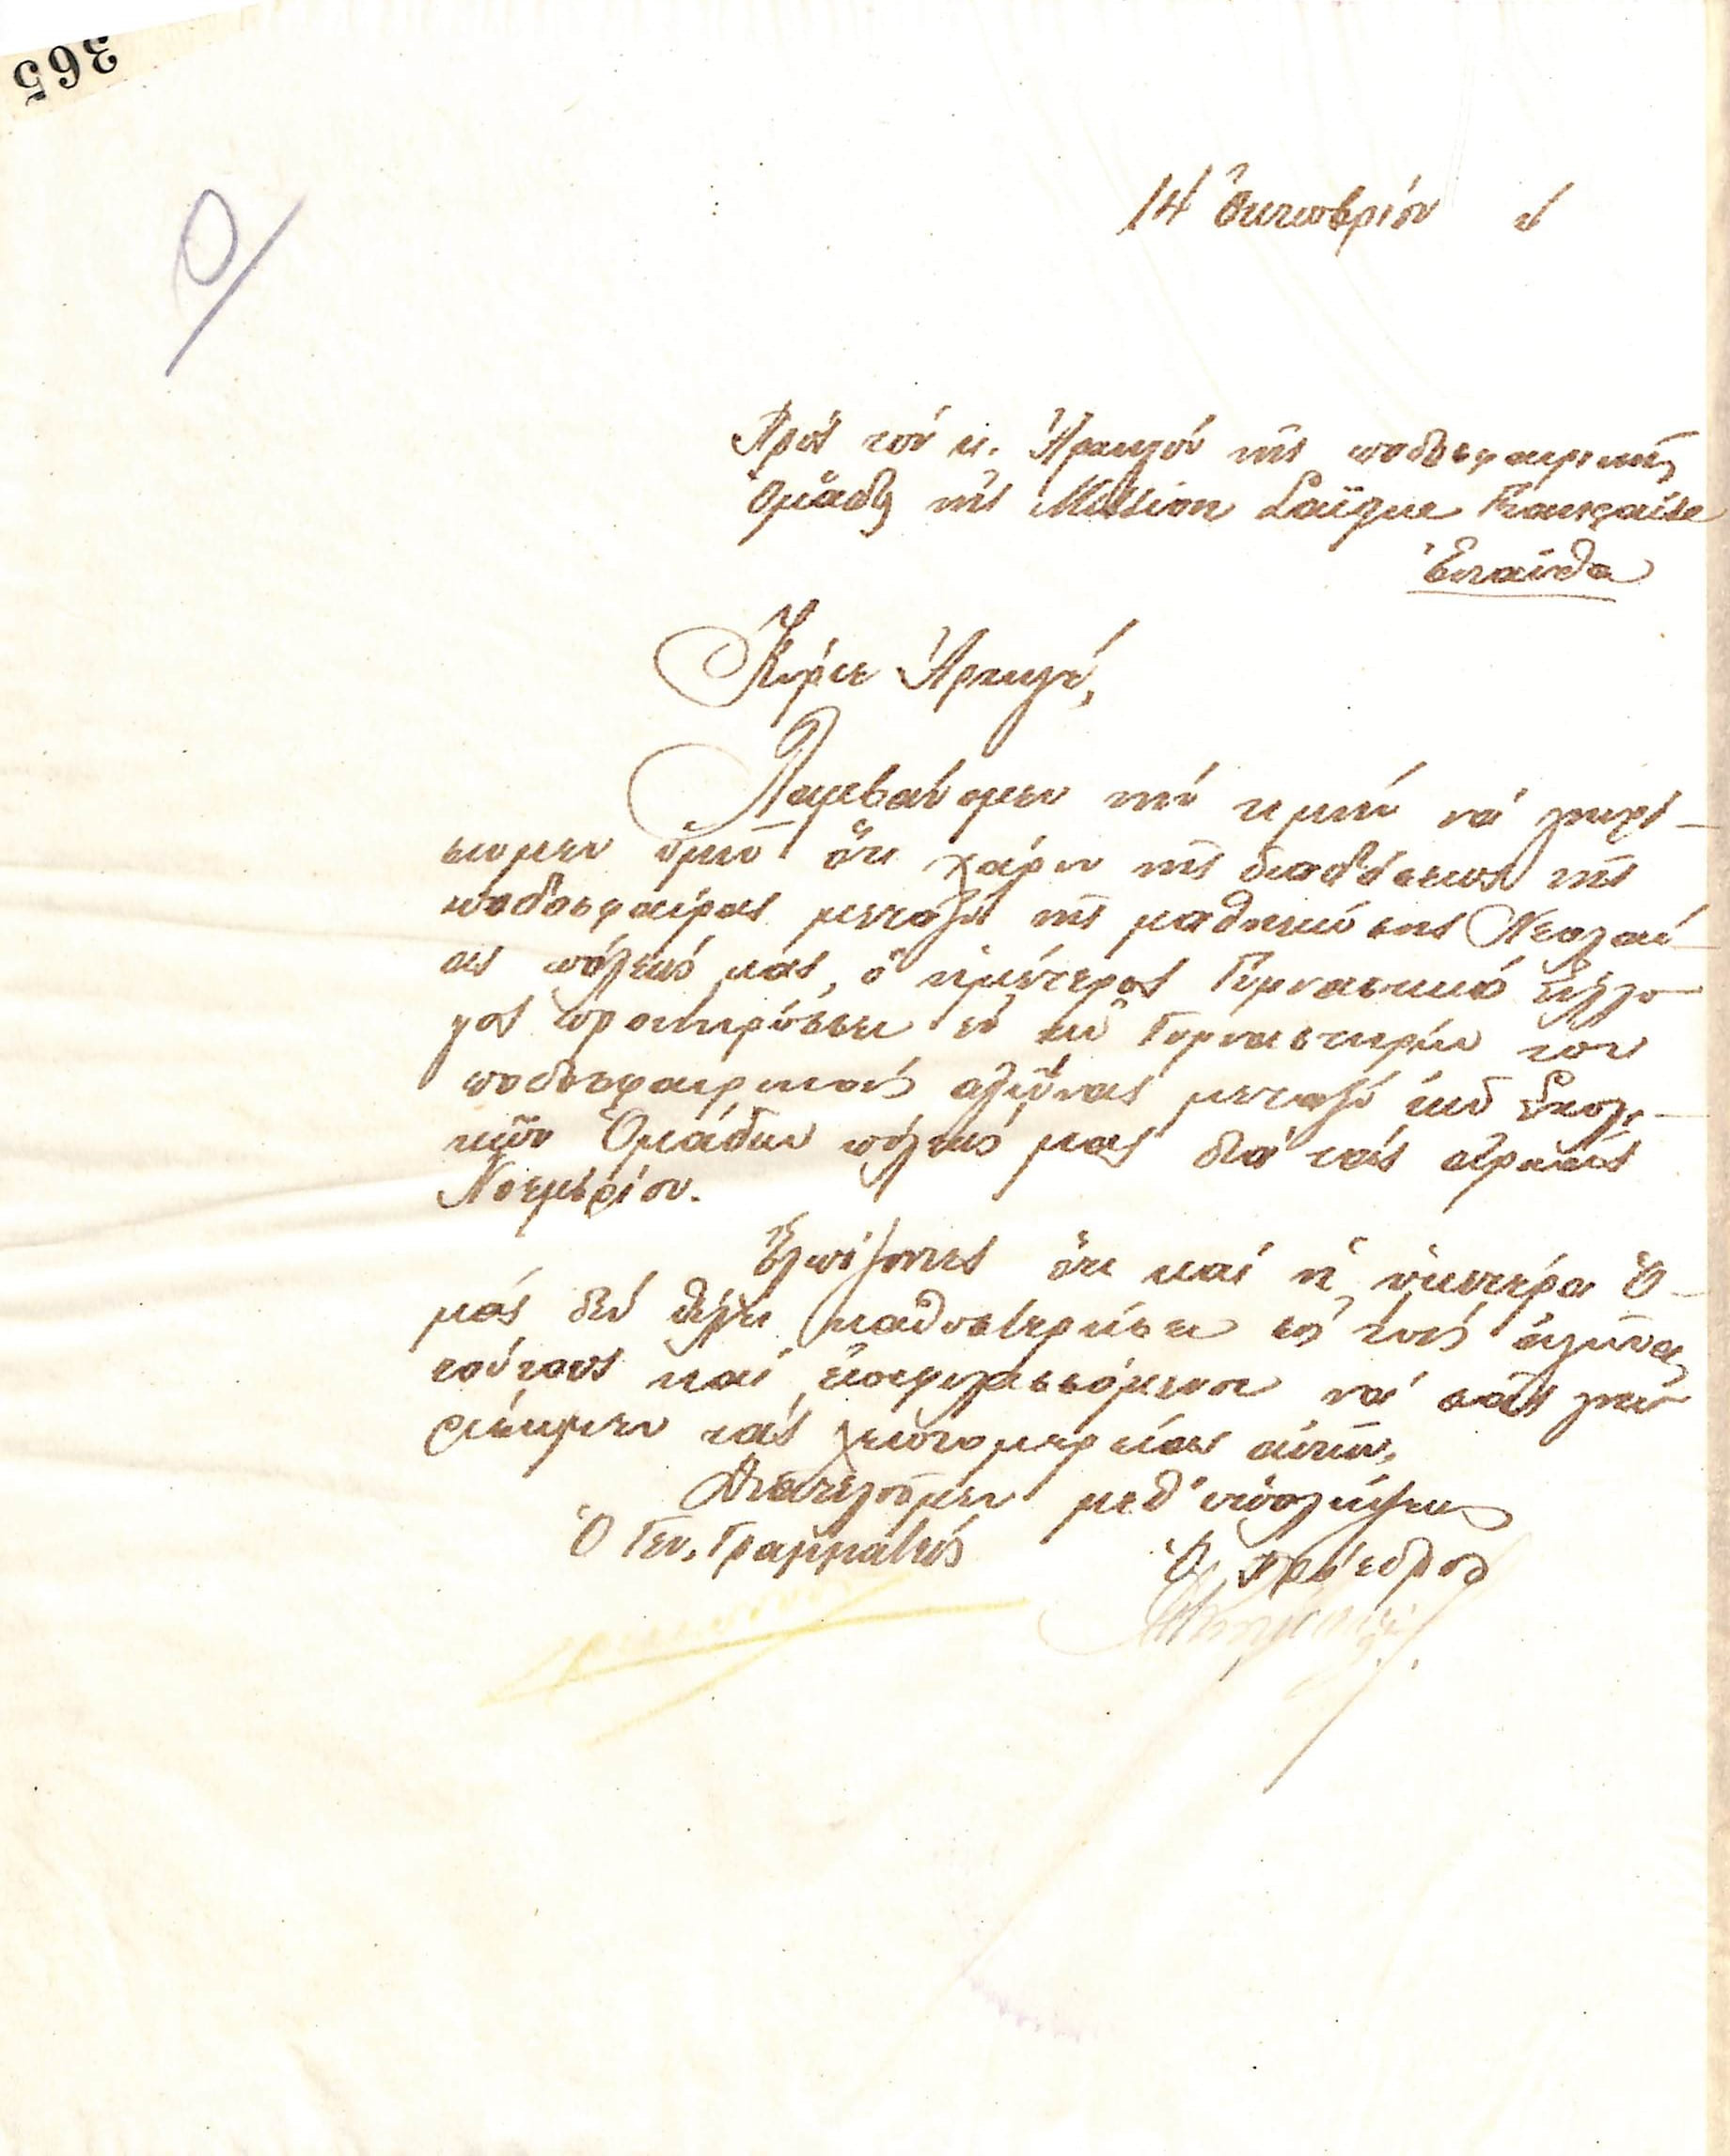 365
14 Ὀκτωβρίου
Πρὸς τὸν κ. Ἀρχηγὸν τῆς ποδοσφαιρικῆς
Ὁμάδος τῆς Mission Laïque Française
Ἐνταῦθα
Κύριε Ἀρχηγέ,
Λαμβάνομεν τὴν τιμὴν νὰ γνωρί-
σωμεν ὑμῖν ὅτι χάριν τῆς διαδόσεως τῆς
ποδοσφαίρας μεταξὺ τῆς μαθητευούσης Νεολαί-
ας πόλεώς μας, ὁ ἡμέτερος Γυμναστικὸς Σύλλο-
γος προκηρύσσει ἐν τῷ Γυμναστηρίῳ του
ποδοσφαιρικοὺς ἀγῶνας μεταξὺ τῶν Σχολι-
κῶν Ὁμάδων πόλεώς μας διὰ τὰς ἀρχὰς
Νοεμβρίου.
Ἐλπίζοντες ὅτι καὶ ἡ ὑμετέρα Ὁ-
μὰς δὲν θέλει καθυστερήσει εἰς τοὺς ἀγῶνας
τούτους καὶ ἐπιφυλασσόμενοι νὰ σᾶς γνω-
ρίσωμεν τὰς λεπτομερείας αὐτῶν,
Διατελοῦμεν μεθ' ὑπολήψεως
Ὁ Γεν. Γραμματεὺς
Ὁ Πρόεδρος